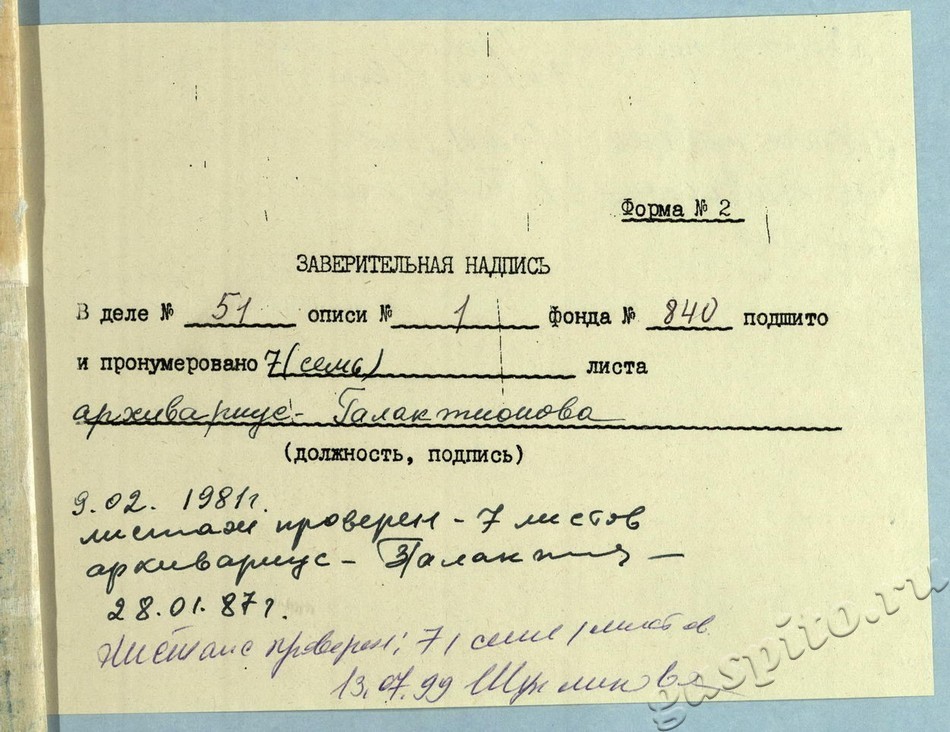 Форма № 2
ЗАВЕРИТЕЛЬНАЯ НАДПИСЬ
В деле № 51 описи № 1 фонда № 840 подшито
и пронумеровано 7 (семь) листа
архивариус - Галактионова
(должность, подпись)
9.02. 1981г.
листаж проверен - 7 листов
архивариус -
28.01.87г.
Листаж проверен: 7 / семь / листов
13.07.99
gaspito.ru